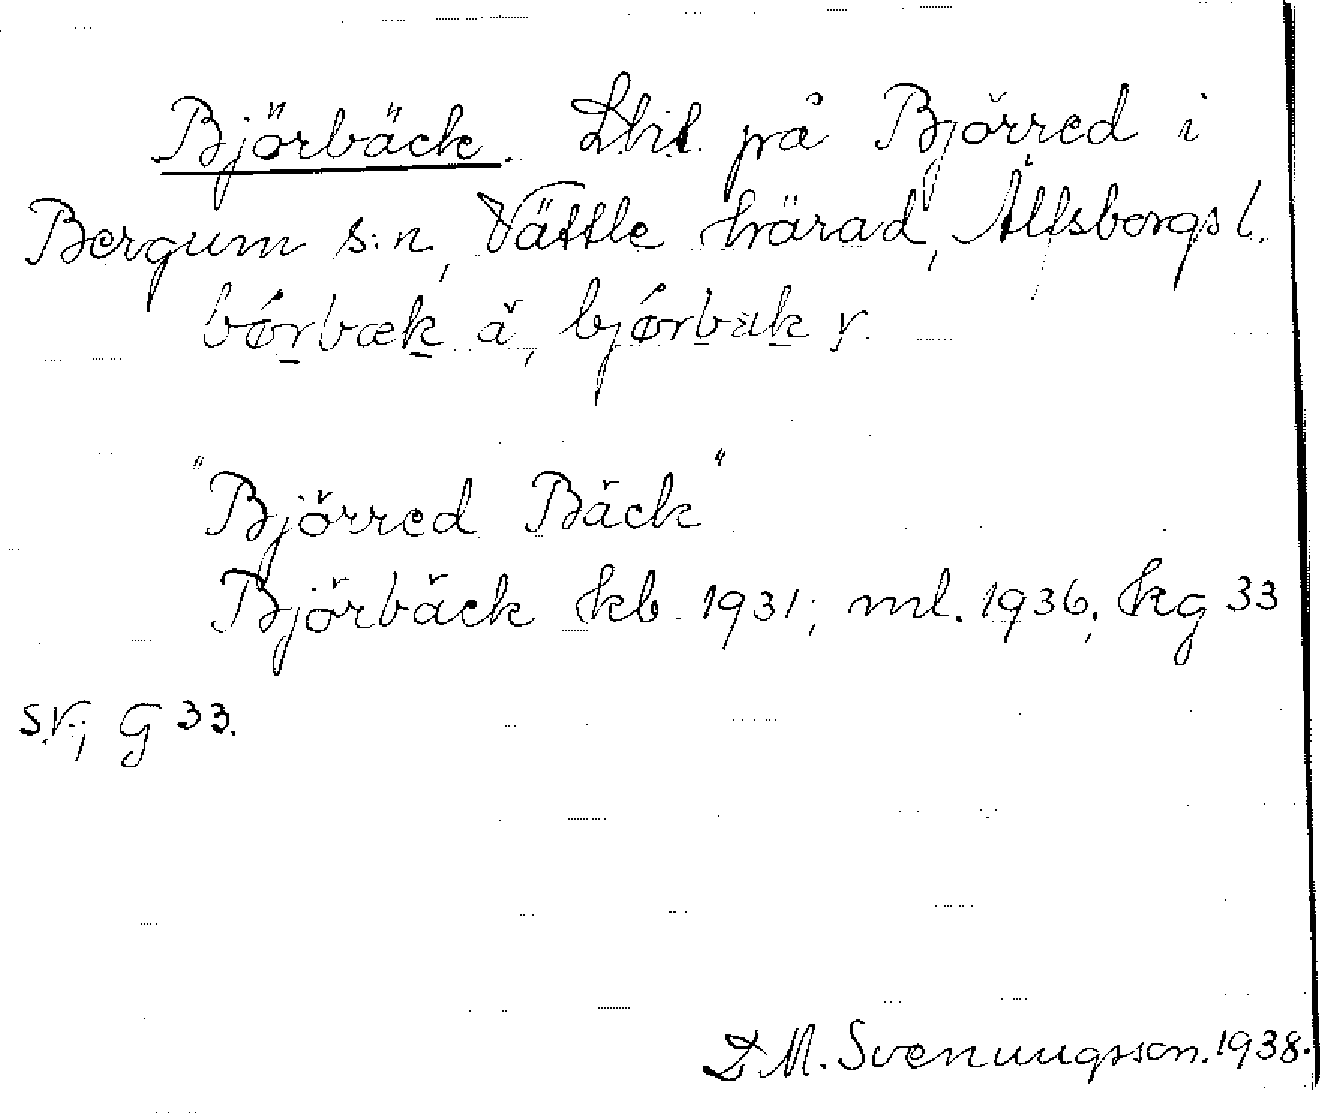 Björbäck. Lht. på Björred i
Bergum s:n, Vättle härad, Älfsborgs l.
bǿrbæk ä, bjǿrbæk y.
"Björred Bäck"
Björbäck kb. 1931; ml. 1936, kg 33
SV; G 33.
D M. Svenungsson. 1938.